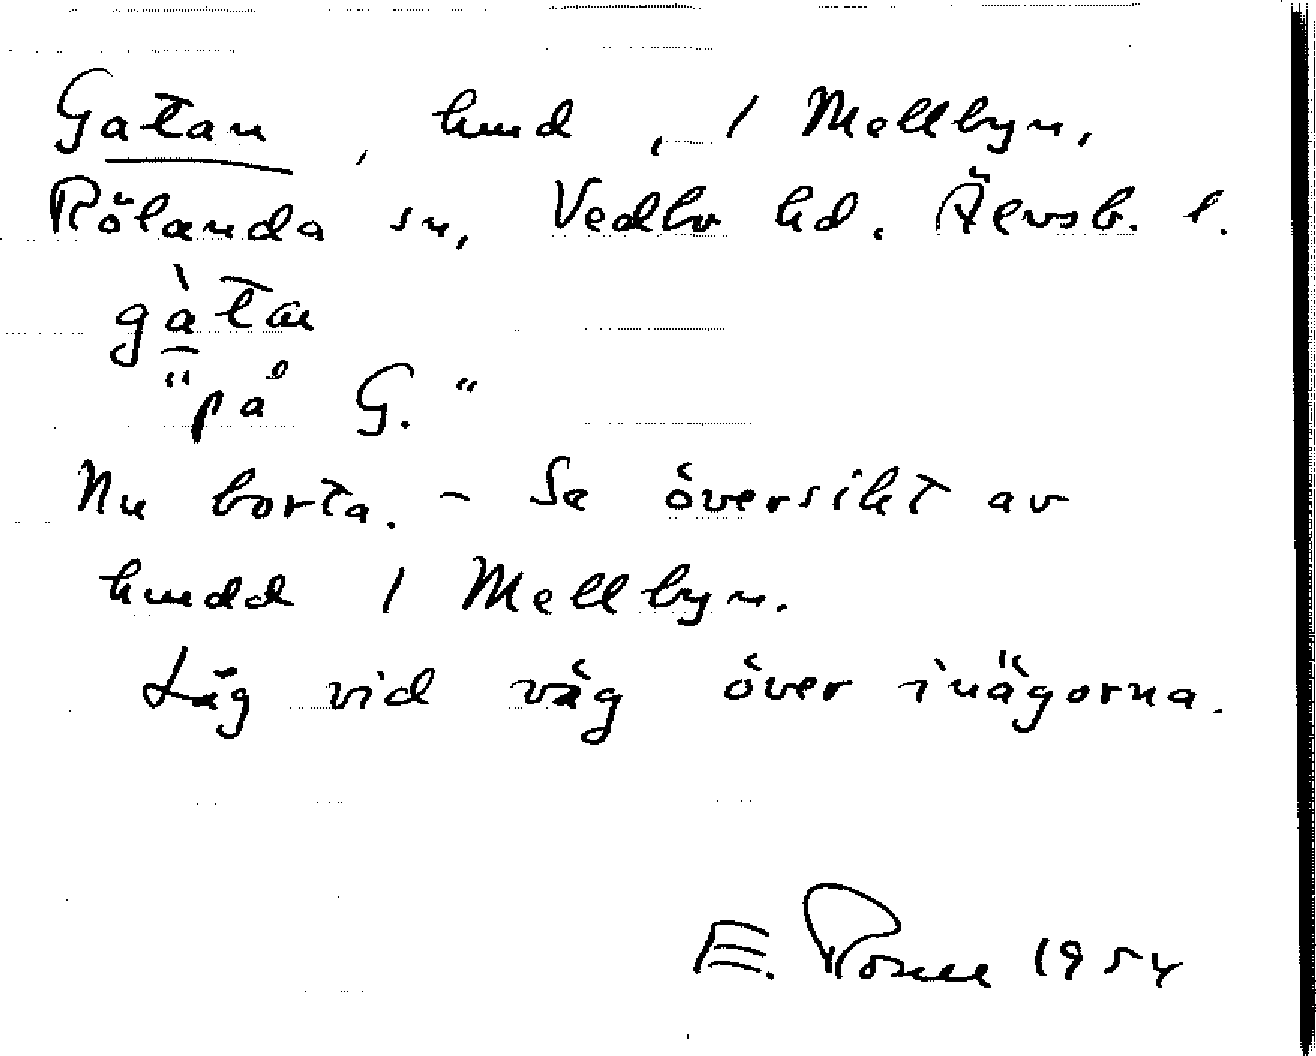 Gatan, hmd, 1 Mellbyn,
Rölanda sn, Vedbo hd. Älvsb. l.
gàtan
"på G."
Nu borta. – Se översikt av
hmdd 1 Mellbyn.
Låg vid väg över inägorna.
E. 1954